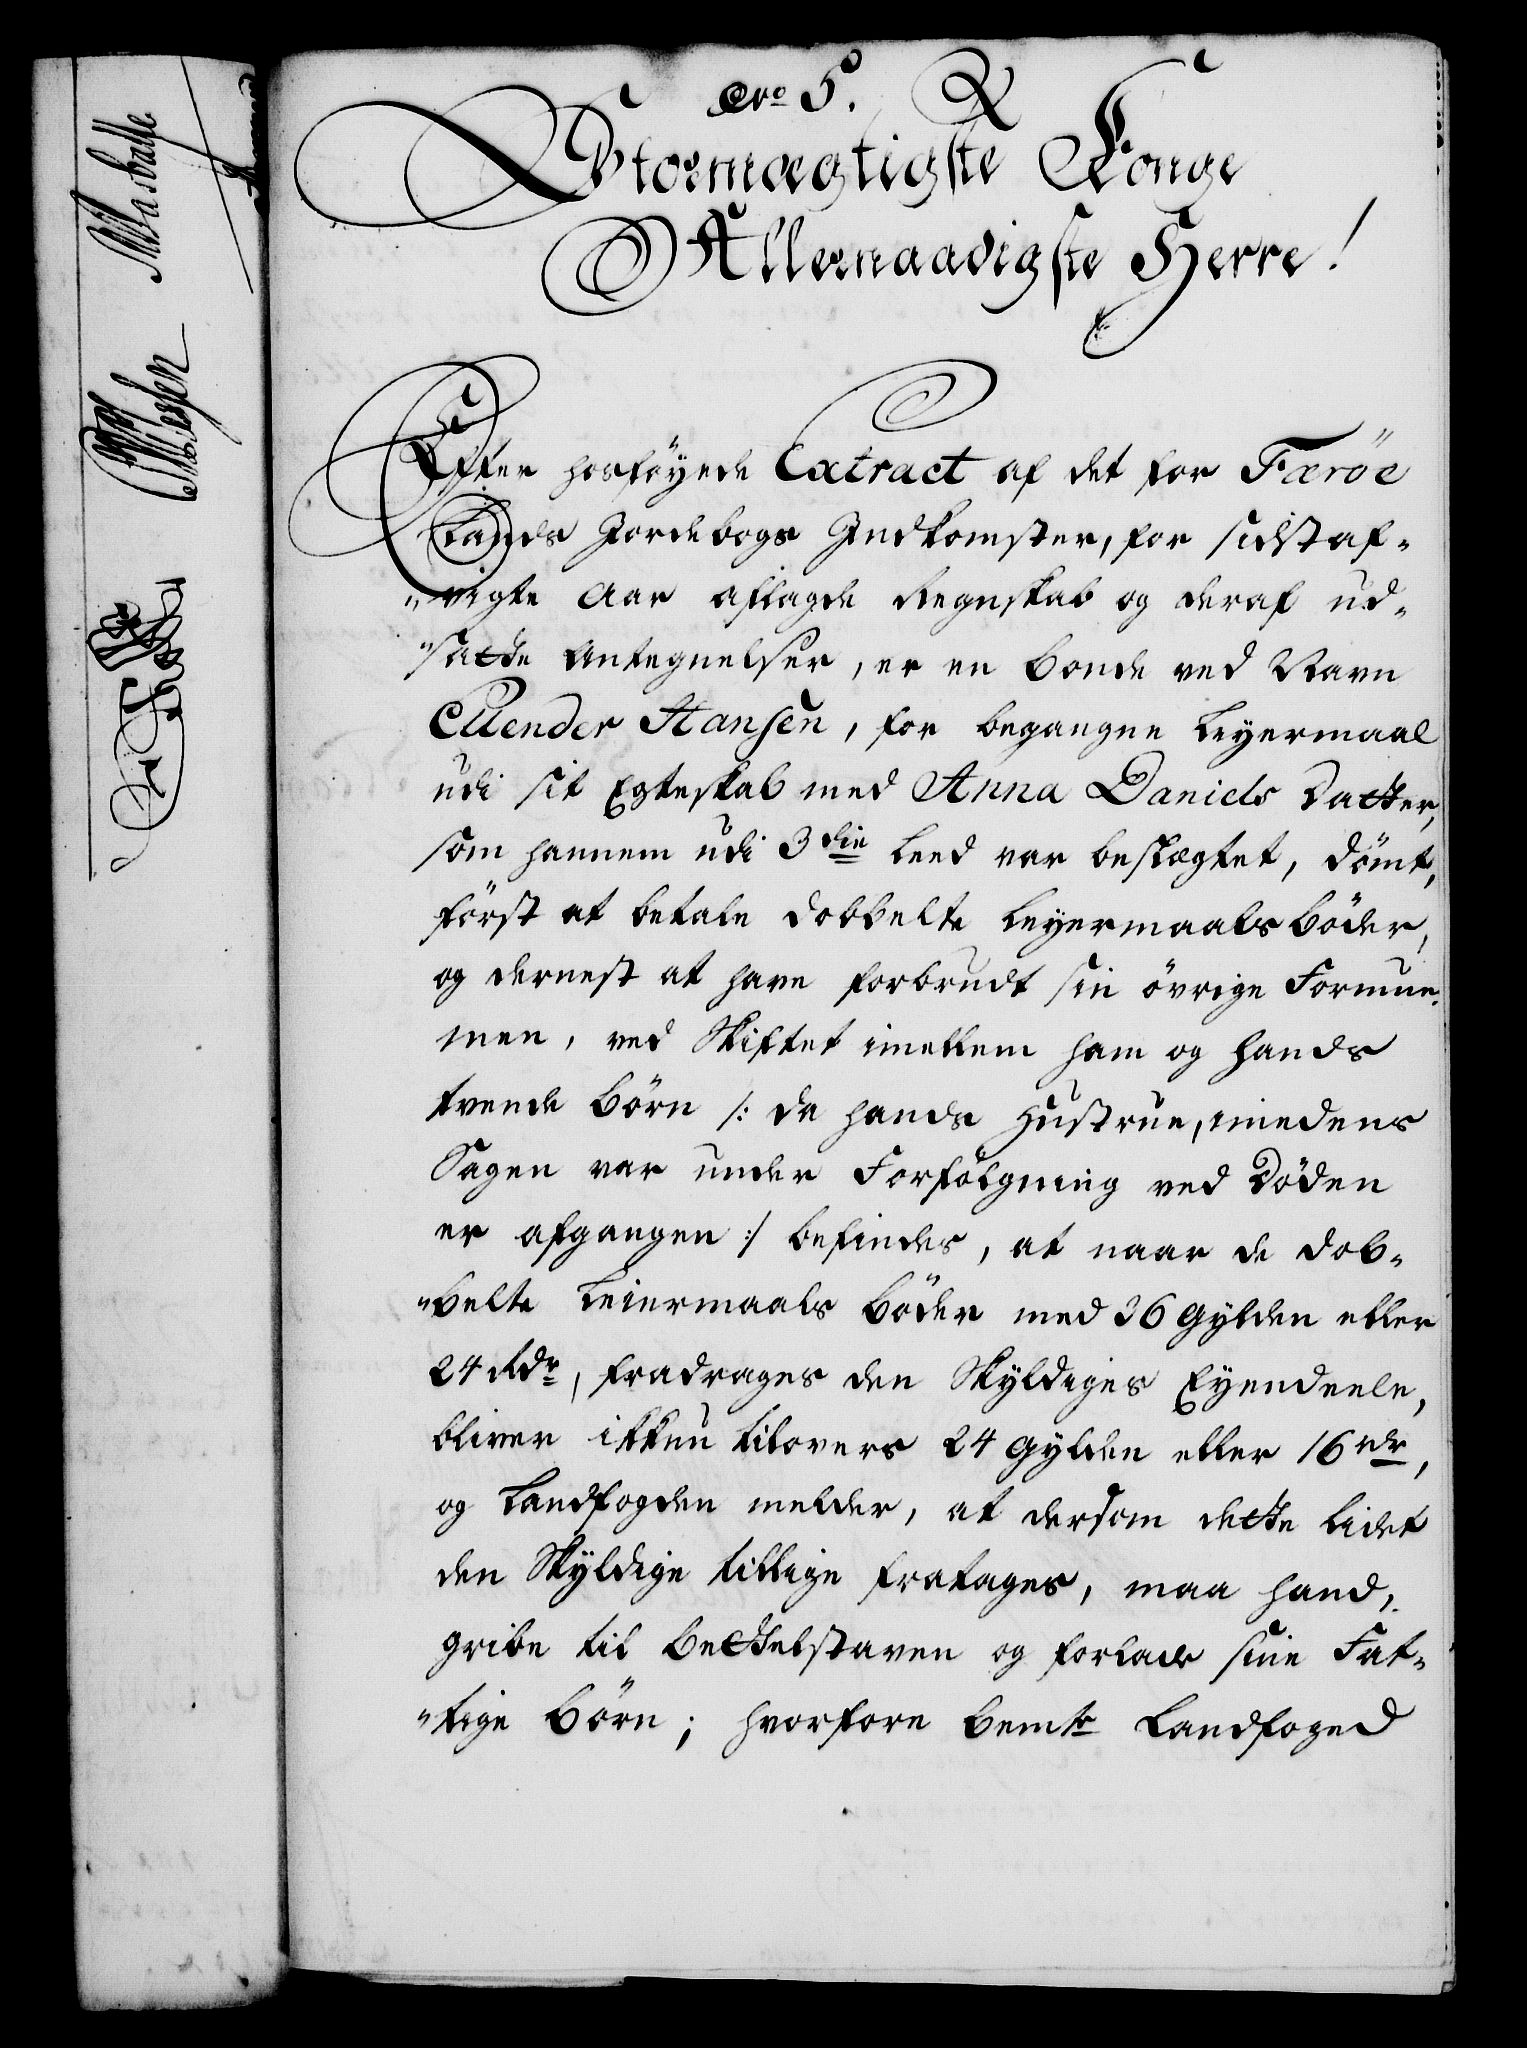 No 5.
Stormægtigste Konge
Allernaadigste Herre!
Efter hosføyede Extract af det for Færöe
Lands Jordebogs Indkomster, for sidstaf-
"vigte Aar aflagde Regnskab og deraf ud-
"satte Antegnelser, er en Bonde ved Navn
Mender Hansen, for begangne Leyermaal
udi sit Egteskab med Anna Daniels Datter,
som hannem udi 3die Leed var beslægtet, dömt,
först at betale dobbelte Leyermaals böder,
og dernest at have forbrudt sin övrige Formue.
men, ved Skiftet imellem ham og hands
tvende Börn /: da hands Hustrue, imedens
Sagen var under Forfölgning ved Döden
er afgangen :/ befindes, at naar de dob-
"belte Leiermaals Böder med 36 Gylden eller
24 Rdr, fradrages den Skyldiges Eyendeele,
bliver ikkun tilovers 24 Gylden eller 16 rdr,
og Landfogden melder, at dersom dette lidet
den Skyldige tillige fratages, maa hand,
gribe til Bettelstaven og forlade sine Fat-
"tige Börn; hvorfore bemte Landfoged